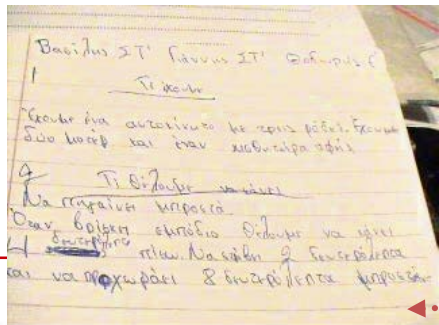 Βασίλης ΣΤ' Γιάννης ΣΤ' Θοδωρής Ε'
1
Τι έχουμε
Έχουμε ένα αυτοκίνητο με τρεις ρόδες. Έχουμε
δύο μοτέρ και έναν αισθητήρα αφής
2
Τι θέλουμε να κάνει
Να πηγαίνει μπροστά.
Όταν βρίσκει εμπόδιο θέλουμε να κάνει
4 δευτερόλεπτα πίσω. Να στρίβει 2 δευτερόλεπτα
και να προχωράει 8 δευτερόλεπτα μπροστά.